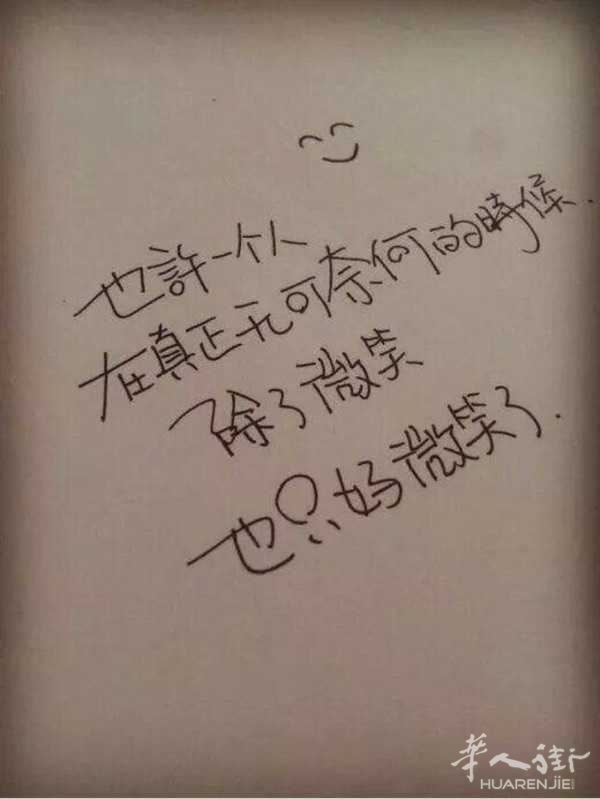 也許一个人
在真正无可奈何的時候.
除了微笑
也只好微笑了.
華人街
HUARENJIE